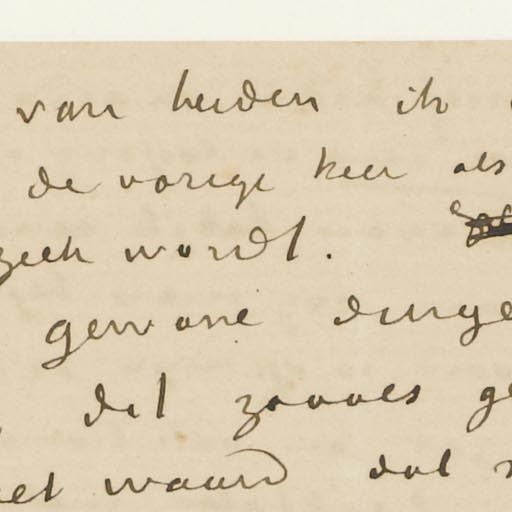 van heden ik
de vorige keer als
ziek wordt.
gewone dinge
dat zooals ge
niet waard dat